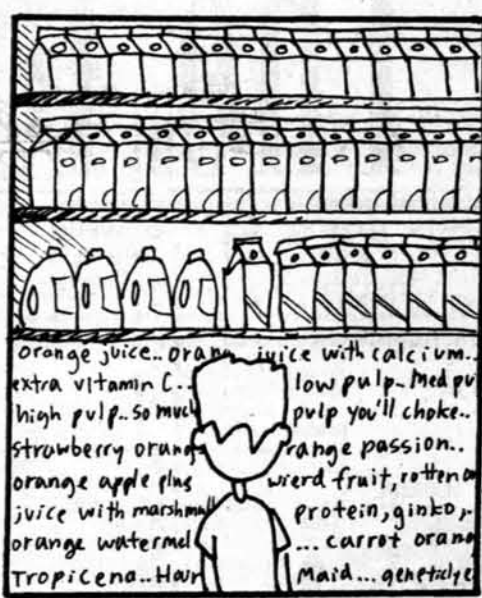 orange juice.. orang juice with calcium..
extra vitamin C.. low pulp.. Med pu
high pulp.. so much pulp you'll choke..
strawberry orang range passion..
orange apple plus wierd fruit, rotten o
juice with marshmall protein, ginko,..
orange watermel ... carrot orang
Tropicena.. Hour Maid... genetic